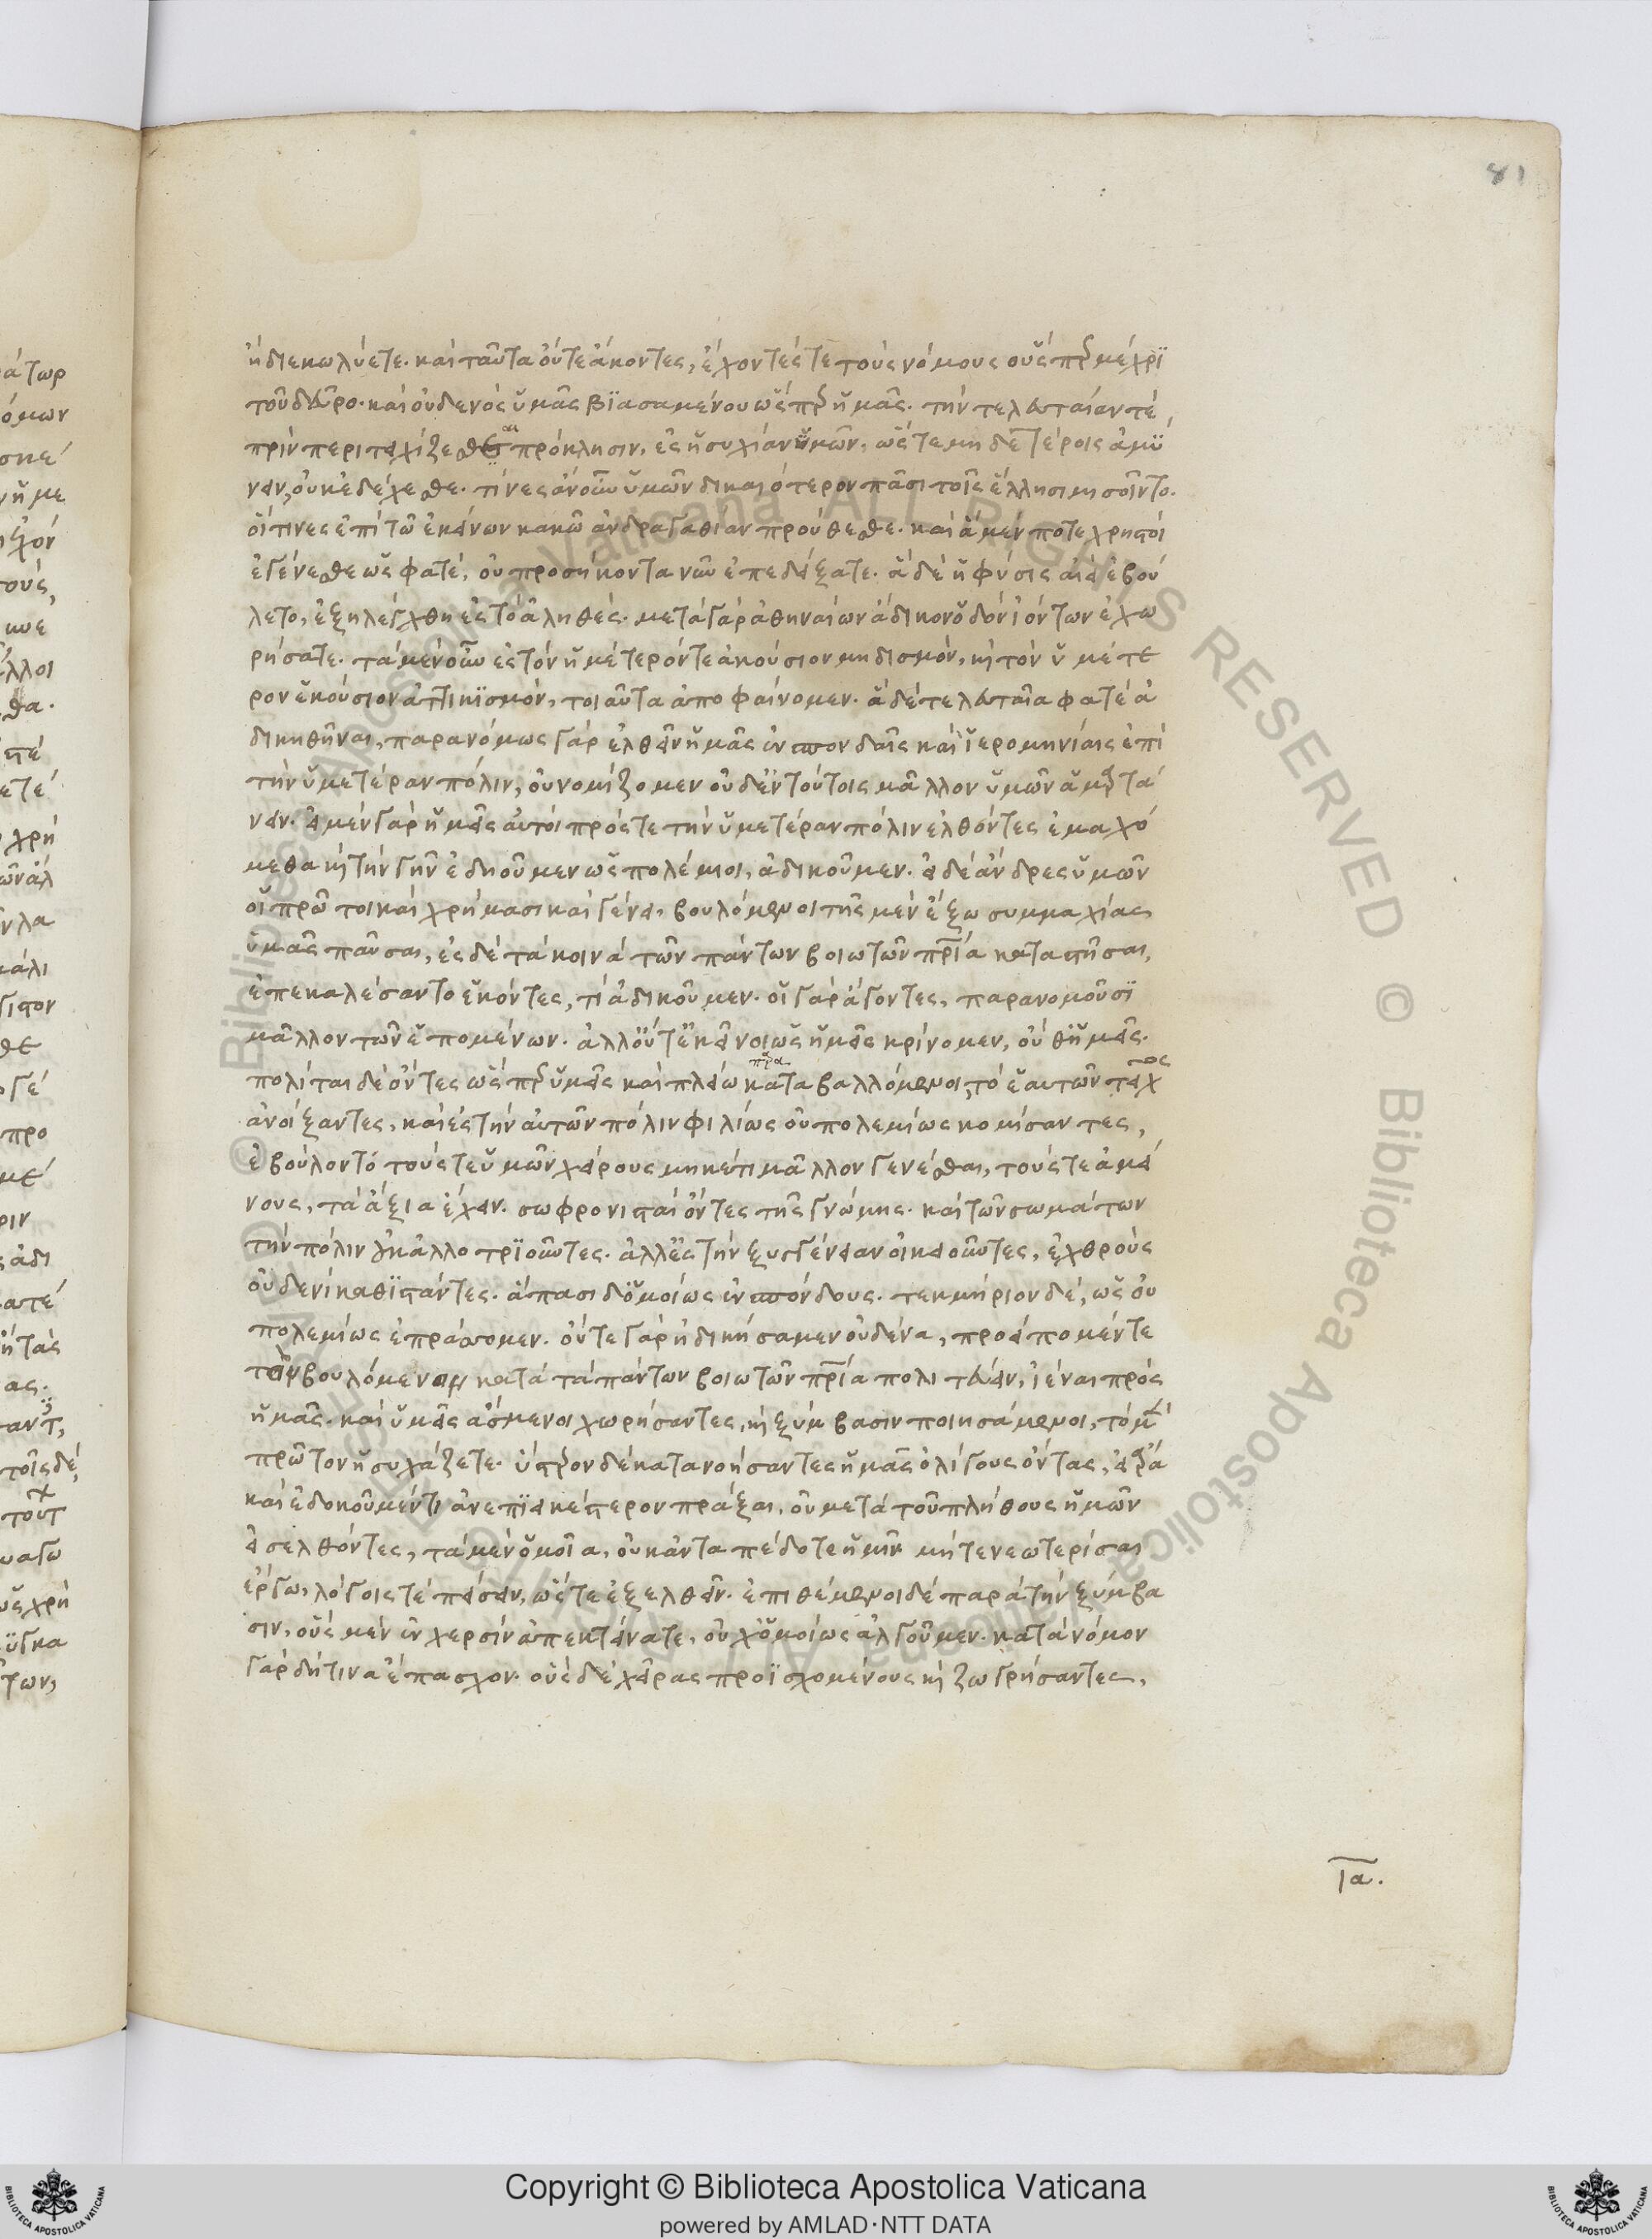 81
ἢ διεκωλύετε. καὶ ταῦτα οὔτε ἄκοντες, ἔχοντές τε τοὺς νόμους οὕσπερ μέχρι
τοῦ δεῦρο. καὶ οὐδενὸς ὑμᾶς βιασαμένου ὥσπερ ἡμᾶς. τὴν τελευταίαν τὲ
πρὶν περιτειχίζεσθαι πρόκλησιν, ἐς ἡσυχίαν ἡμῶν, ὥστε μηδετέροις ἀμύ
νειν, οὐκ ἐδέχεσθε. τίνες ἂν οὖν ὑμῶν δικαιότερον πᾶσι τοῖς ἕλλησι μισοῖντο.
οἵτινες ἐπὶ τῶ ἐκείνων κακῶ ἀνδραγαθίαν προύθεσθε. καὶ ἃ μέν ποτε χρηστοὶ
ἐγένεσθε ὡς φατέ, οὐ προσήκοντα νῦν ἐπεδείξατε. ἃ δὲ ἡ φύσις αἰεὶ ἐβού
λετο, ἐξηλέγχθη ἐς τὸ ἀληθές. μετὰ γὰρ ἀθηναίων ἄδικον ὁδὸν ἰόντων ἐχω
ρήσατε. τὰ μὲν οὖν ἐς τὸν ἡμέτερόν τε ἀκούσιον μηδισμόν, καὶ τὸν ὑμέτε
ρον ἑκούσιον ἀττικισμόν, τοιαῦτα ἀποφαίνομεν. ἃ δὲ τελευταῖα φατὲ ἀ
δικηθῆναι, παρανόμως γὰρ ἐλθεῖν ἡμᾶς ἐν σπονδαῖς καὶ ἱερομηνίαις ἐπὶ
τὴν ὑμετέραν πόλιν, οὐ νομίζομεν οὐδ' ἐν τούτοις μᾶλλον ὑμῶν ἁμαρτά
νειν. εἰ μὲν γὰρ ἡμεῖς αὐτοὶ πρός τε τὴν ὑμετέραν πόλιν ἐλθόντες ἐμαχό
μεθα καὶ τὴν γῆν ἐδηοῦμεν ὡς πολέμιοι, ἀδικοῦμεν. εἰ δὲ ἄνδρες ὑμῶν
οἱ πρῶτοι καὶ χρήμασι καὶ γένει, βουλόμενοι τῆς μὲν ἔξω συμμαχίας
ὑμᾶς παῦσαι, ἐς δὲ τὰ κοινὰ τῶν πάντων βοιωτῶν πρια καταστῆσαι,
ἐπεκαλέσαντο ἑκόντες, τί ἀδικοῦμεν. οἱ γὰρ ἄγοντες, παρανομοῦσι
μᾶλλον τῶν ἑπομένων. ἀλλ' οὔτ' ἐκεῖνοι ὡς ἡμεῖς κρίνομεν, οὔθ' ἡμεῖς.
πολῖται δὲ ὄντες ὥσπερ ὑμεῖς καὶ πλείω παρα καταβαλλόμενοι, τὸ ἑαυτῶν τεῖχος
ἀνοίξαντες, καὶ ἐς τὴν αὐτῶν πόλιν φιλίως οὐ πολεμίως κομίσαντες,
ἐβούλοντο τούς τε ὑμῶν χείρους μηκέτι μᾶλλον γενέσθαι, τούς τε ἀμεί
νους, τὰ ἄξια ἔχειν. σωφρονισταὶ ὄντες τῆς γνώμης. καὶ τῶν σωμάτων
τὴν πόλιν οὐκ ἀλλοτριοῦντες. ἀλλ' ἐς τὴν ξυγγένειαν οἰκειοῦντες, ἐχθροὺς
οὐδενὶ καθιστάντες. ἅπασι δ' ὁμοίως ἐνσπόνδους. τεκμήριον δέ, ὡς οὐ
πολεμίως ἐπράσσομεν. οὔτε γὰρ ἠδικήσαμεν οὐδένα, προείπομέν τε
τὸν βουλόμενον κατὰ τὰ πάντων βοιωτῶν πρια πολιτεύειν, ἰέναι πρὸς
ἡμᾶς. καὶ ὑμεῖς ἄσμενοι χωρήσαντες, καὶ ξύμβασιν ποιησάμενοι, τὸ μὲν
πρῶτον ἡσυχάζετε. ὕστερον δὲ κατανοήσαντες ἡμᾶς ὀλίγους ὄντας, εἰ ἄρα
καὶ ἐδοκοῦμέν τι ἀνεπιεικέστερον πρᾶξαι, οὐ μετὰ τοῦ πλήθους ἡμῶν
εἰσελθόντες, τὰ μὲν ὁμοῖα, οὐκ ἀνταπέδοτε ἡμῖν μήτε νεωτερίσαι
ἔργω, λόγοις τὲ πείσειν, ὥστε ἐξελθεῖν. ἐπιθέμενοι δὲ παρὰ τὴν ξύμβα
σιν, οὓς μὲν ἐν χερσὶν ἀπεκτείνατε, οὐχ ὁμοίως ἀλγοῦμεν. κατὰ νόμον
γὰρ δή τινα ἔπασχον. οὓς δὲ χεῖρας προϊσχομένους καὶ ζωγρήσαντες,
ια.
Copyright © Biblioteca Apostolica Vaticana
powered by AMLAD·NTT DATA